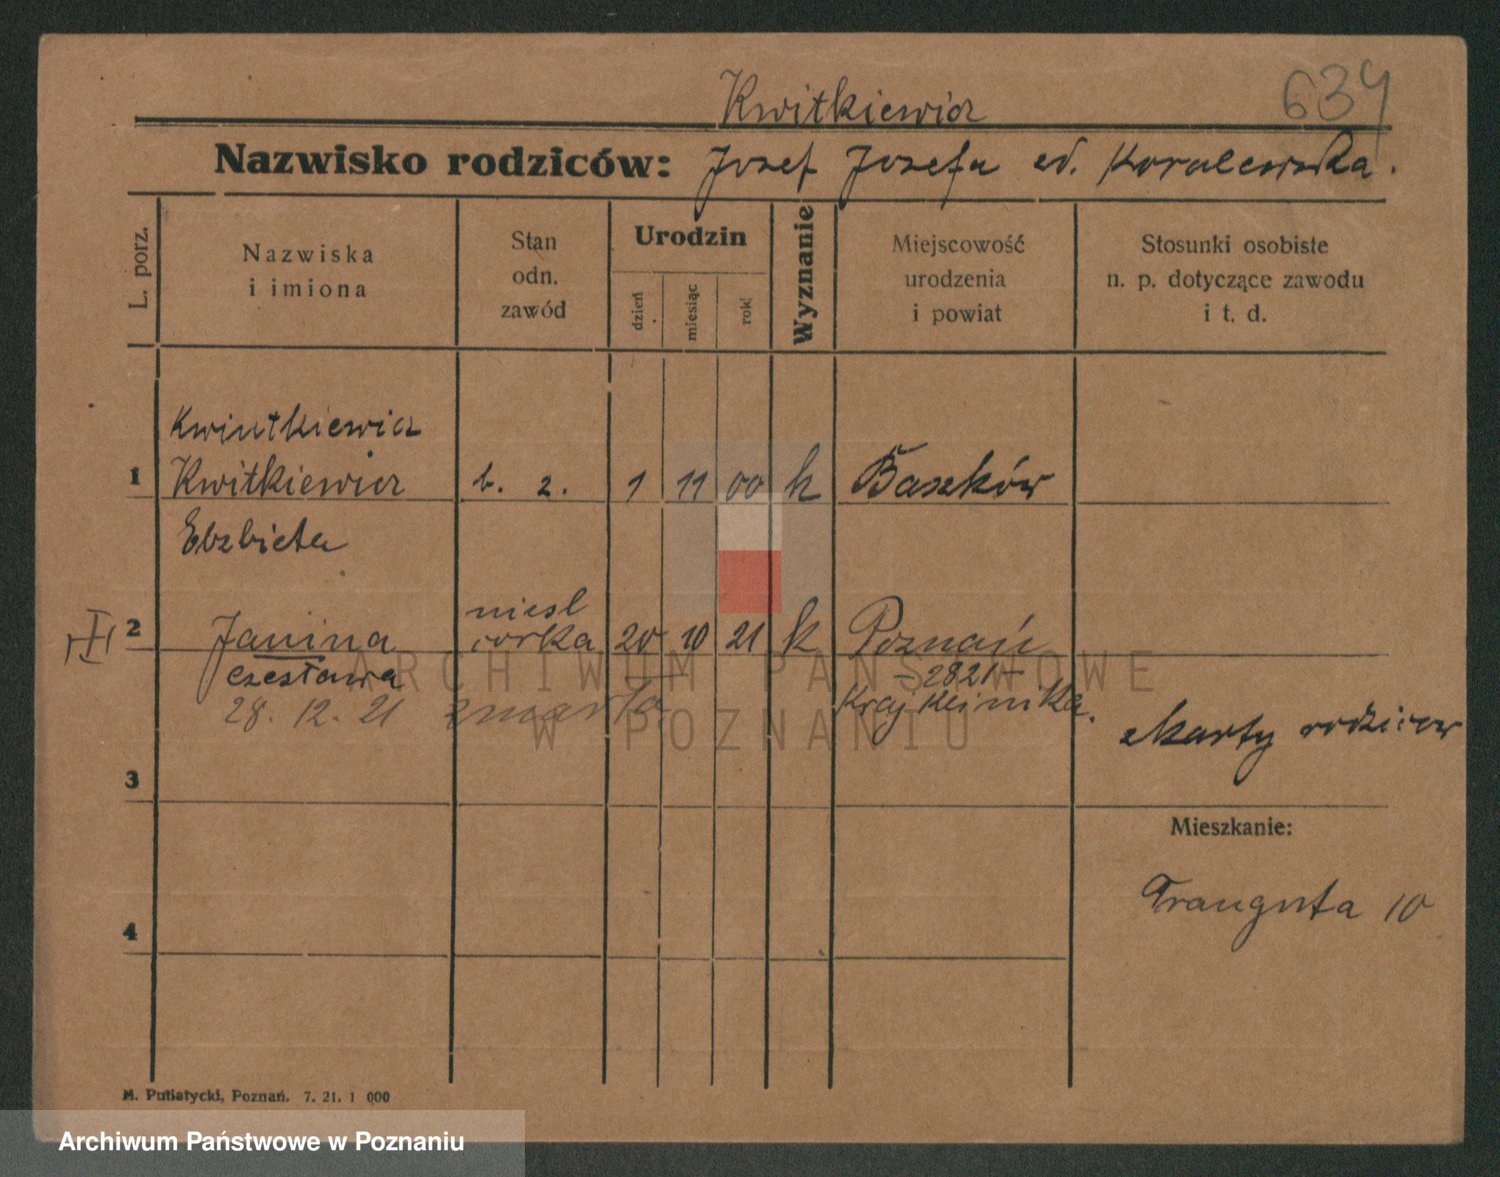 Kwitkiewicz
634
Nazwisko rodziców: Josef Josefa ed. Koralewska.
L. porz.
Nazwiska
i imiona
Stan
odn.
zawód
Urodzin
dzień
miesiąc
rok
Wyznanie
Miejscowość
urodzenia
i powiat
Stosunki osobiste
n. p. dotyczące zawodu
i t. d.
Kwintkiewicz
1 Kwitkiewicz b. 2. 1 11 00 k Baszków
Elzbieta
niesl
2 Janina corka 20 10 21 k Poznań
Czesława -2821-
28. 12. 21 zmarła Kraj Klinika.
Karty rodziców
3
Mieszkanie:
Traugutta 10
4
M. Putiatycki, Poznań. 7. 21. 1 000
ARCHIWUM PAŃSTWOWE
W POZNANIU
Archiwum Państwowe w Poznaniu